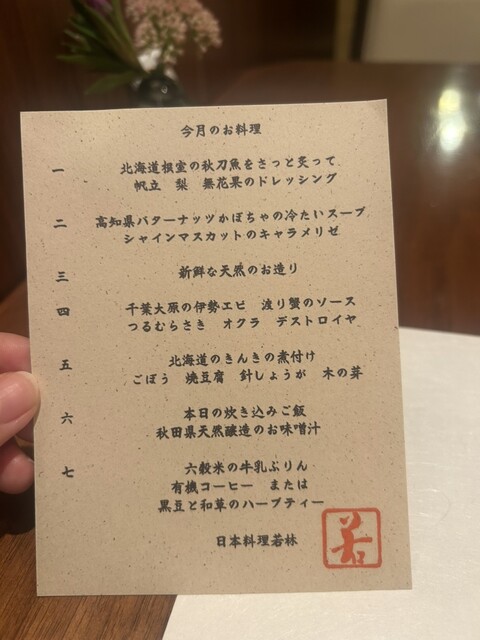 今月のお料理
一 北海道根室の秋刀魚をさっと炙って
帆立 梨 無花果のドレッシング
二 高知県バターナッツかぼちゃの冷たいスープ
シャインマスカットのキャラメリゼ
三 新鮮な天然のお造り
四 千葉大原の伊勢エビ 渡り蟹のソース
つるむらさき オクラ デストロイヤ
五 北海道のきんきの煮付け
ごぼう 焼豆腐 針しょうが 木の芽
六 本日の炊き込みご飯
秋田県天然醸造のお味噌汁
七 六穀米の牛乳ぷりん
有機コーヒー または
黒豆と和草のハーブティー
日本料理若林
若